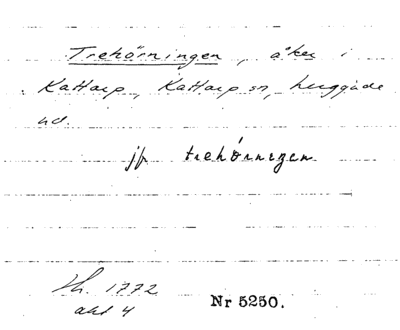 Trehörningen, åker i
Kattarp, Kattarp sn, Luggude
hd.
jfr trehörnezen
Lh. 1772
akt 4
Nr 5250.